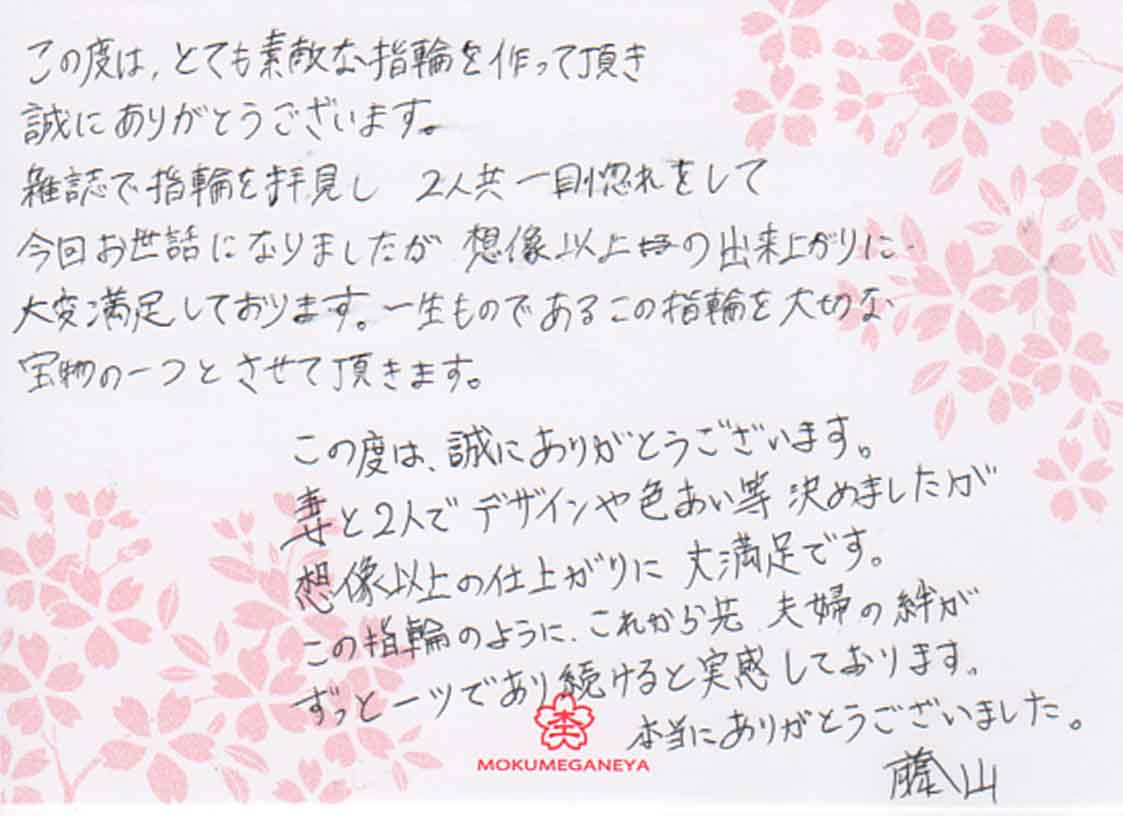 この度は、とても素敵な指輪を作って頂き
誠にありがとうございます。
雑誌で指輪を拝見し 2人共一目惚れをして
今回お世話になりましたが 想像以上の出来上がりに
大変満足しております。一生ものであるこの指輪を大切な
宝物の一つとさせて頂きます。
この度は、誠にありがとうございます。
妻と2人でデザインや色あい等決めましたが
想像以上の仕上がりに 大満足です。
この指輪のように、これから先 夫婦の絆が
ずっと一ツであり続けると実感しております。
本当にありがとうございました。
MOKUMEGANEYA
藤山